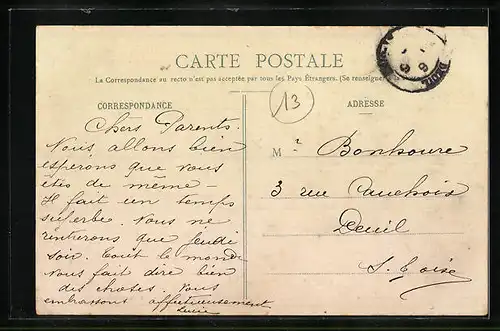 CARTE POSTALE
La Correspondance au recto n'est pas acceptée par tous les Pays Étrangers. (Se renseigner
13
CORRESPONDANCE
Chers Parents.
Nous allons bien
espérons que vous
êtes de même —
Il fait un temps
superbe. Nous ne
rentrerons que jeudi
soir. Tout le monde
vous fait dire bien
des choses. Nous
embrassons affectueusement
ADRESSE
M Bonhoure
3 rue Cauchoix
Deuil
S. & Oise